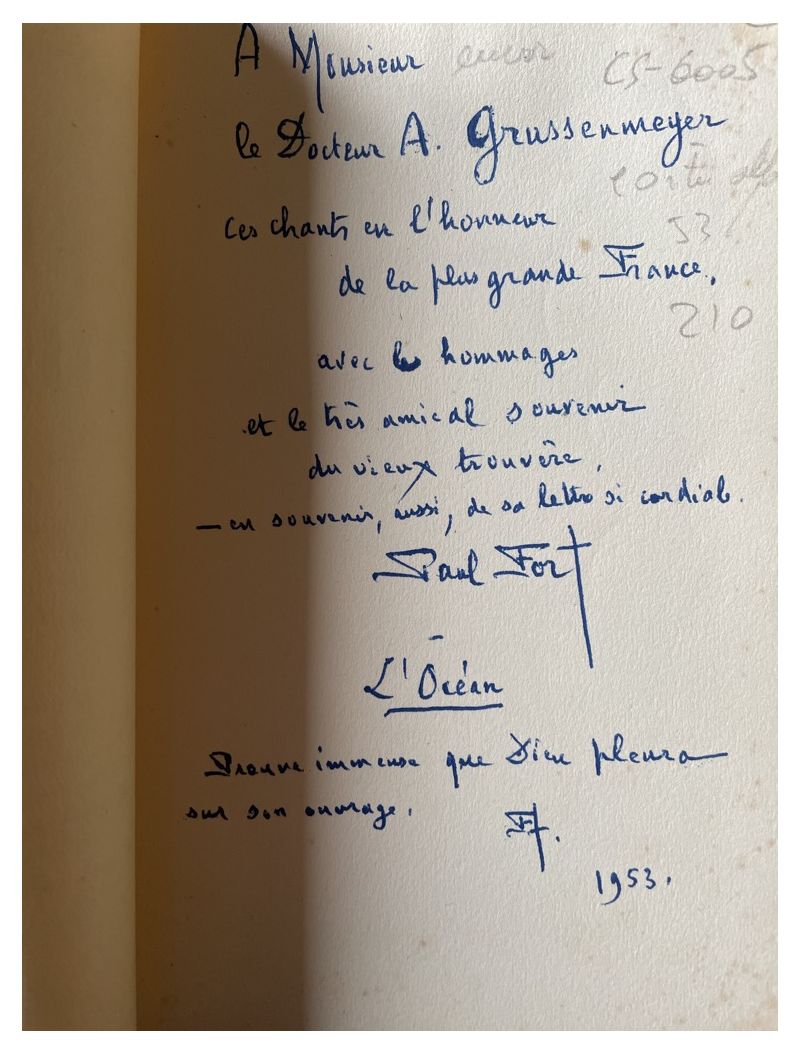 A Monsieur
CS-6005
le Docteur A. Grussenmeyer
ces chants en l'honneur
53
de la plus grande France,
210
avec les hommages
et le très amical souvenir
du vieux trouvère,
— en souvenir, aussi, de sa lettre si cordiale.
Paul Fort
L'Océan
Preuve immense que Dieu pleura
sur son ouvrage.
PF.
1953.